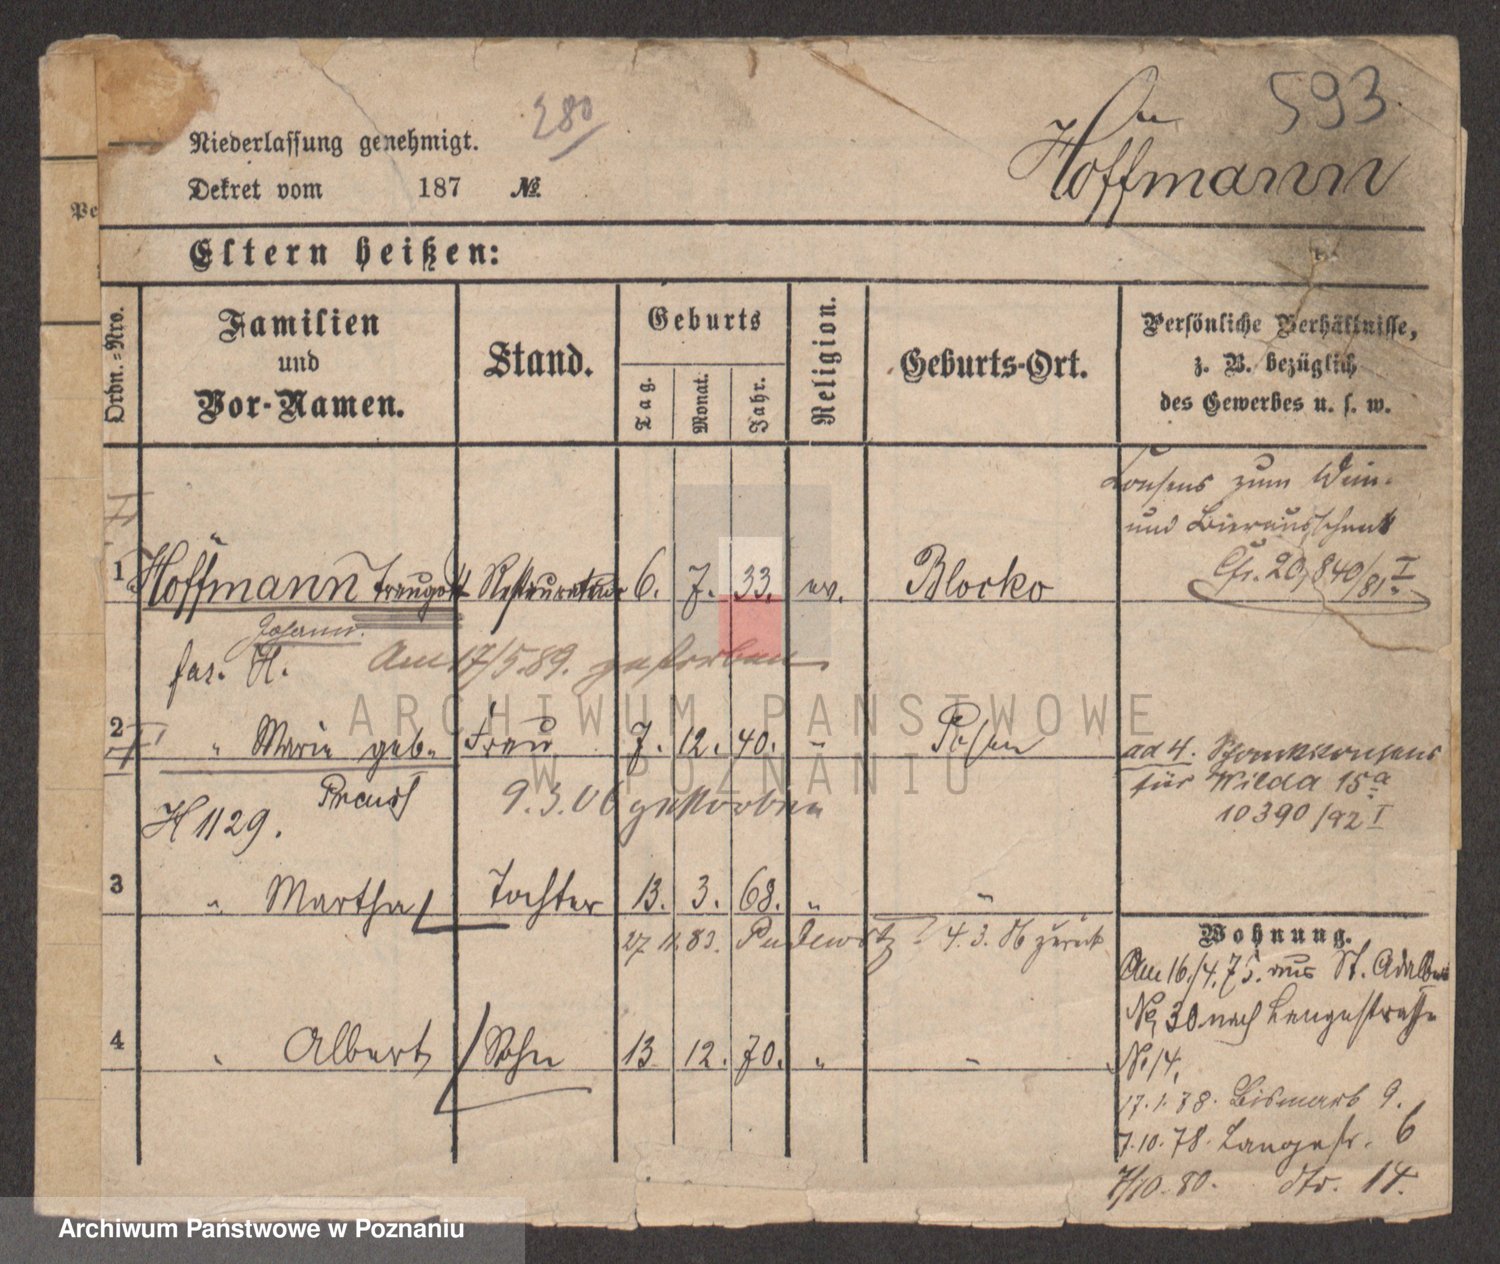 593.
280
Niederlassung genehmigt.
Hoffmann
Dekret vom 187 №
Eltern heißen:
Ordn.-Nro.
Familien
und
Vor-Namen.
Stand.
Geburts
Tag.
Monat.
Jahr.
Religion.
Geburts-Ort.
Persönliche Verhältnisse,
z. B. bezüglich
des Gewerbes u. s. w.
Consens zum Wein-
und Bierausschank
Cfr. 20,840/81 I
1 Hoffmann Traugott Restaurateur 6. 7. 33. ev. Blocko
Johann.
fas. H. Am 17/5.89. gestorben
2 " Marie geb. Frau 7. 12. 40. " Posen
Preuss 9.3.06 gestorben
H 1129.
ad 4. Schankkonsens
für Wilda 15a
10390/92 I
3 " Martha Tochter 13. 3. 68. " "
27 11. 83. Pudewitz 4.3. 86 zurück
4 " Albert Sohn 13 12. 70. " "
Wohnung.
Am 16./4.75. aus St. Adalbert
No 30 nach Langestrasse
No 14.
17.1.78. Bismark 9.
7.10.78. Langestr. 6
7/10.80. dto. 14.
Archiwum Państwowe w Poznaniu
ARCHIWUM PAŃSTWOWE
W POZNANIU